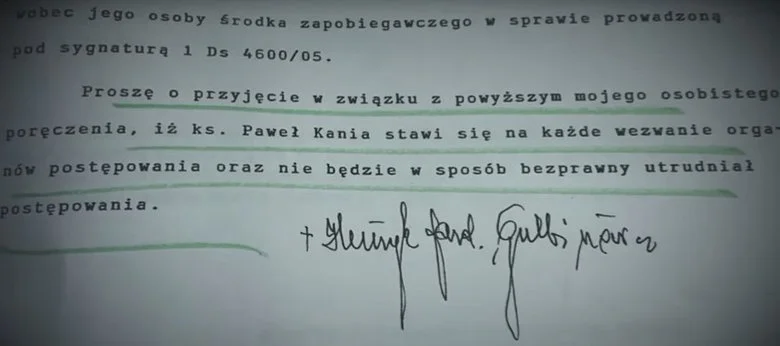 wobec jego osoby środka zapobiegawczego w sprawie prowadzoną
pod sygnaturą 1 Ds 4600/05.
Proszę o przyjęcie w związku z powyższym mojego osobistego
poręczenia, iż ks. Paweł Kania stawi się na każde wezwanie orga-
nów postępowania oraz nie będzie w sposób bezprawny utrudniał
postępowania.
+ Henryk Kard. Gulbinowicz